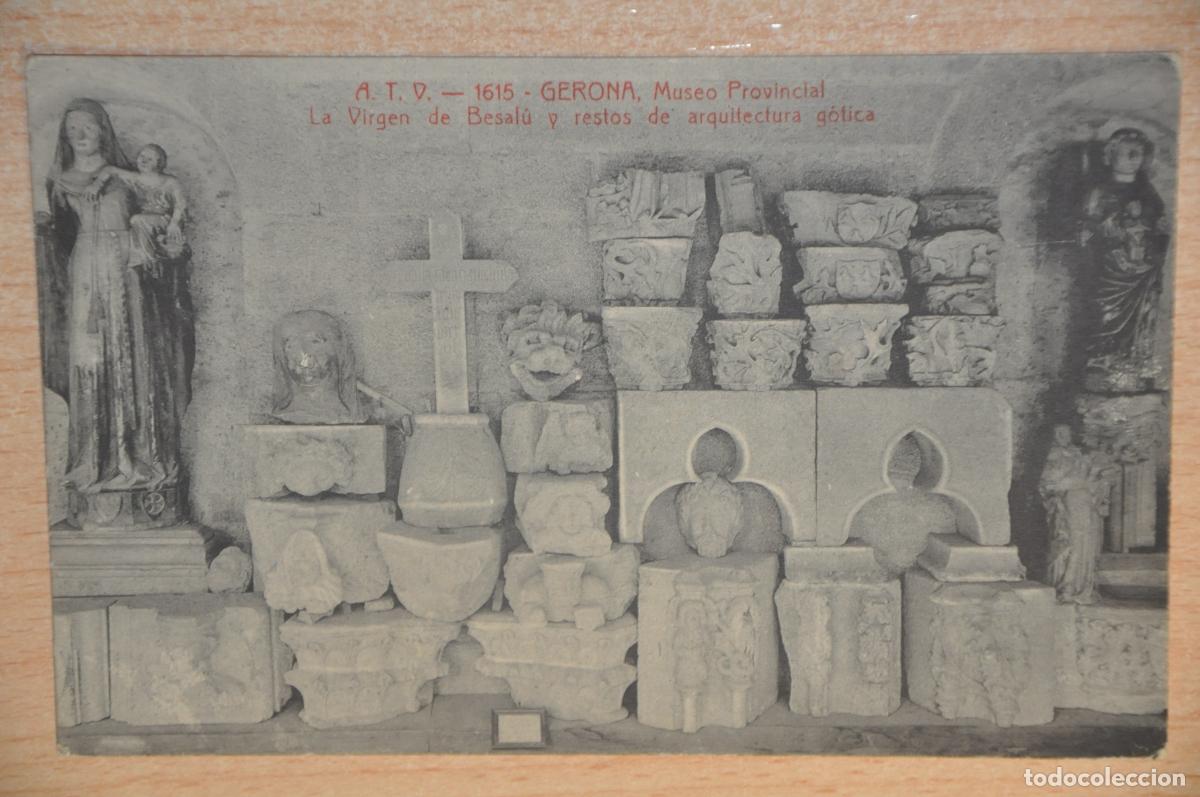 A. T. V. — 1615 - GERONA, Museo Provincial
La Virgen de Besalú y restos de arquitectura gótica
todocoleccion